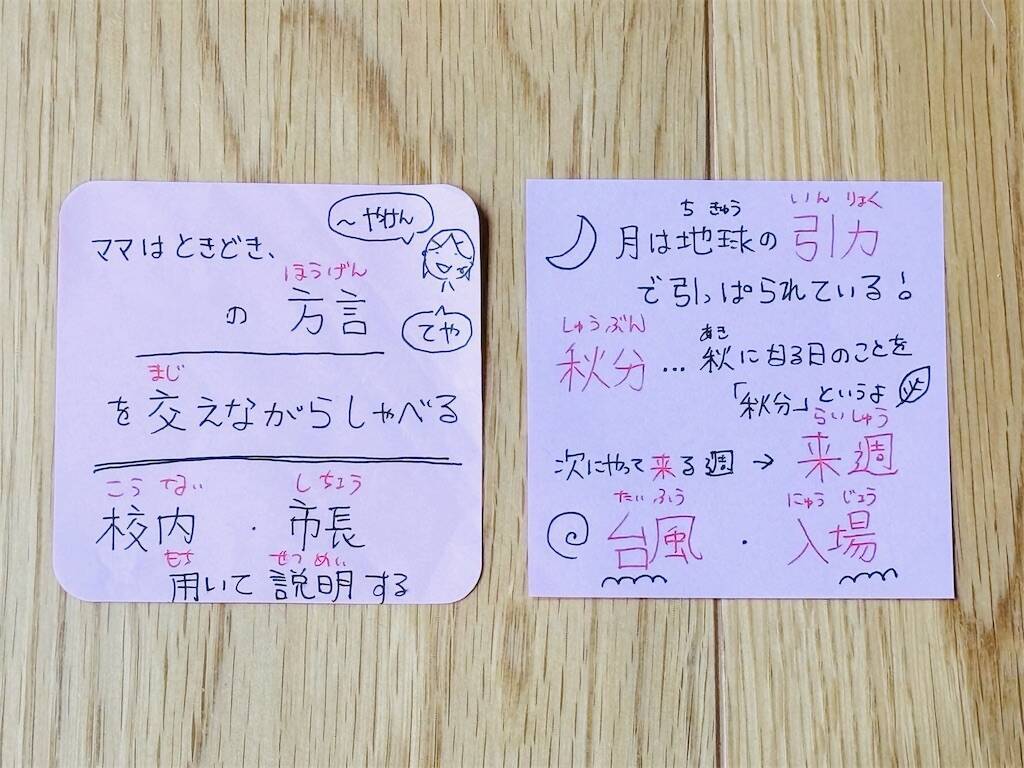 〜やけん
ママはときどき、
ほうげん
の 方言
てや
まじ
を交えながらしゃべる
こう ない しちょう
校内 ・ 市長
もち せつ めい
用いて説明する
ち きゅう いん りょく
月は地球の引力
で引っぱられている!
しゅうぶん あき
秋分…秋に有る日のことを
「秋分」というよ
らいしゅう
次にやって来る週→来週
たい ふう にゅう じょう
台風 ・ 入場